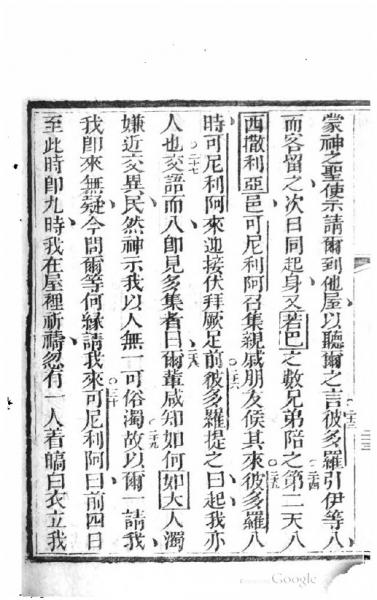 蒙神之聖使示請爾到他屋以聽爾之言彼多羅引伊等入
而客留之次日同起身又若巴之數兄弟陪之第二天入
西撒利亞邑可尼利阿召集親戚朋友候其來彼多羅入
時可尼利阿來迎接伏拜厥足前彼多羅提之曰起我亦
人也交語而入即見多集者曰爾輩咸知如何如大人濁
嫌近交異民然神示我以人無一可俗濁故以爾一請我
我即來無疑今問爾等何緣請我來可尼利阿曰前四日
至此時即九時我在屋裡祈禱忽有一人着皜白衣立我
Google